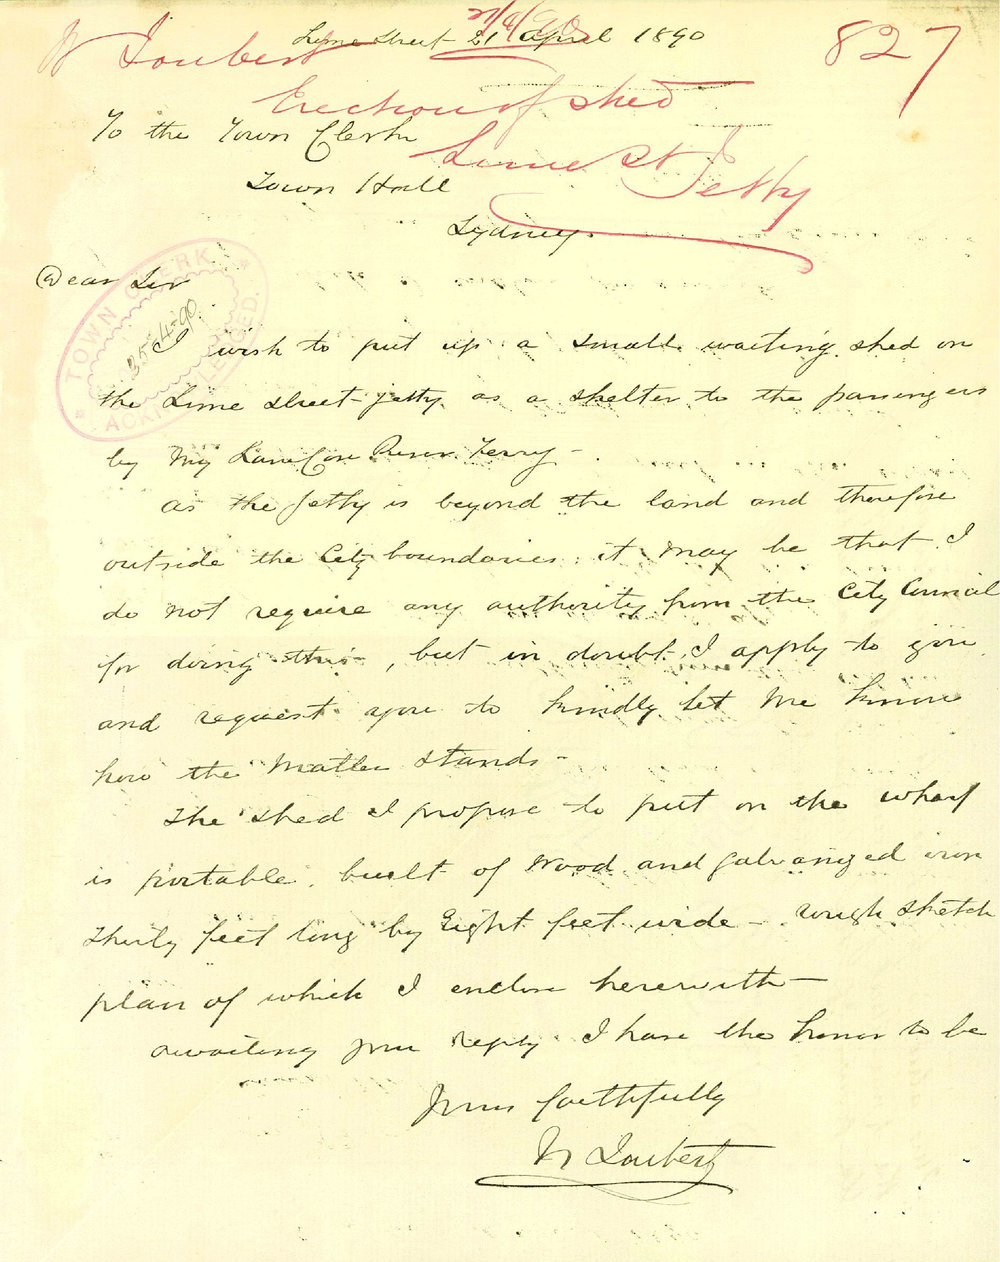 Lime Street 21 April 1890
21/4/90
827
N Joubert
Erection of shed
Lime St Jetty
To the Town Clerk
Town Hall
Sydney.
TOWN CLERK
ACKNOWLEDGED.
Dear Sir
I wish to put up a small waiting shed on
the Lime Street Jetty as a shelter to the passengers
by my Lane Cove River Ferry -
As the Jetty is beyond the land and therefore
outside the City boundaries it may be that I
do not require any authority from the City Council
for doing this, but in doubt I apply to you
and request you to kindly let me know
how the Matter stands -
The shed I propose to put on the wharf
is portable built of Wood and galvanized iron
Thirty feet long by Eight feet wide - rough sketch
plan of which I enclose herewith -
awaiting your reply I have the honor to be
Yours faithfully
N Joubert